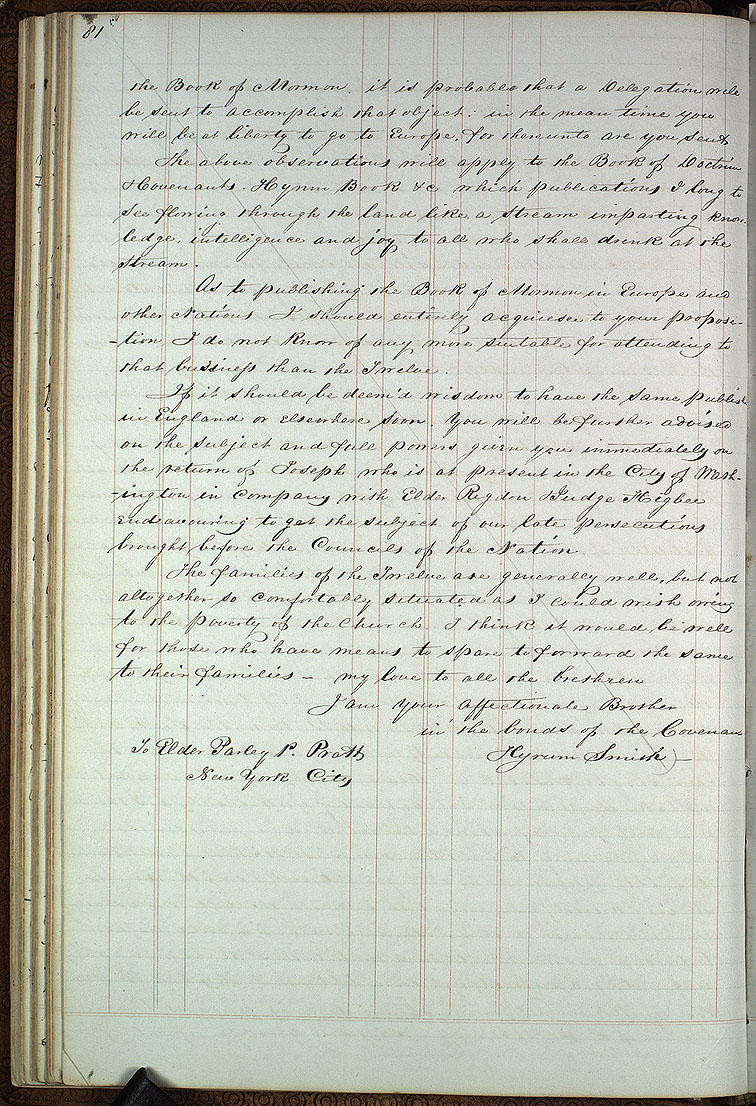 81
the Book of Mormon. it is probable that a Delegation will
be sent to accomplish that object: in the mean time you
will be at liberty to go to Europe, for thereunto are you sent
The above observations will apply to the Book of Doctrine
& Covenants. Hymn Book &c which publications I long to
see flowing through the land like a stream imparting know-
ledge, intelligence and joy to all who shall drink at the
stream.
As to publishing the Book of Mormon in Europe and
other Nations I should entirely acquiesce to your proposi-
-tion I do not know of any more suitable for attending to
that business than the Twelve.
If it should be deem'd wisdom to have the same publish
in England or elsewhere soon. You will be further advised
on the subject and full powers given you immediately on
the return of Joseph who is at present in the City of Wash-
-ington in company with Elder Rigdon & Judge Higbee
endeavouring to get the subject of our late persecutions
brought before the Councils of the Nation
The families of the Twelve are generally well, but not
altogether so comfortably situated as I could wish owing
to the poverty of the Church I think it would be well
for those who have means to spare to forward the same
to their families — my love to all the brethren
I am your affectionate Brother
in the bonds of the Covenan
To Elder Parley P. Pratt
Hyrum Smith —
New York City